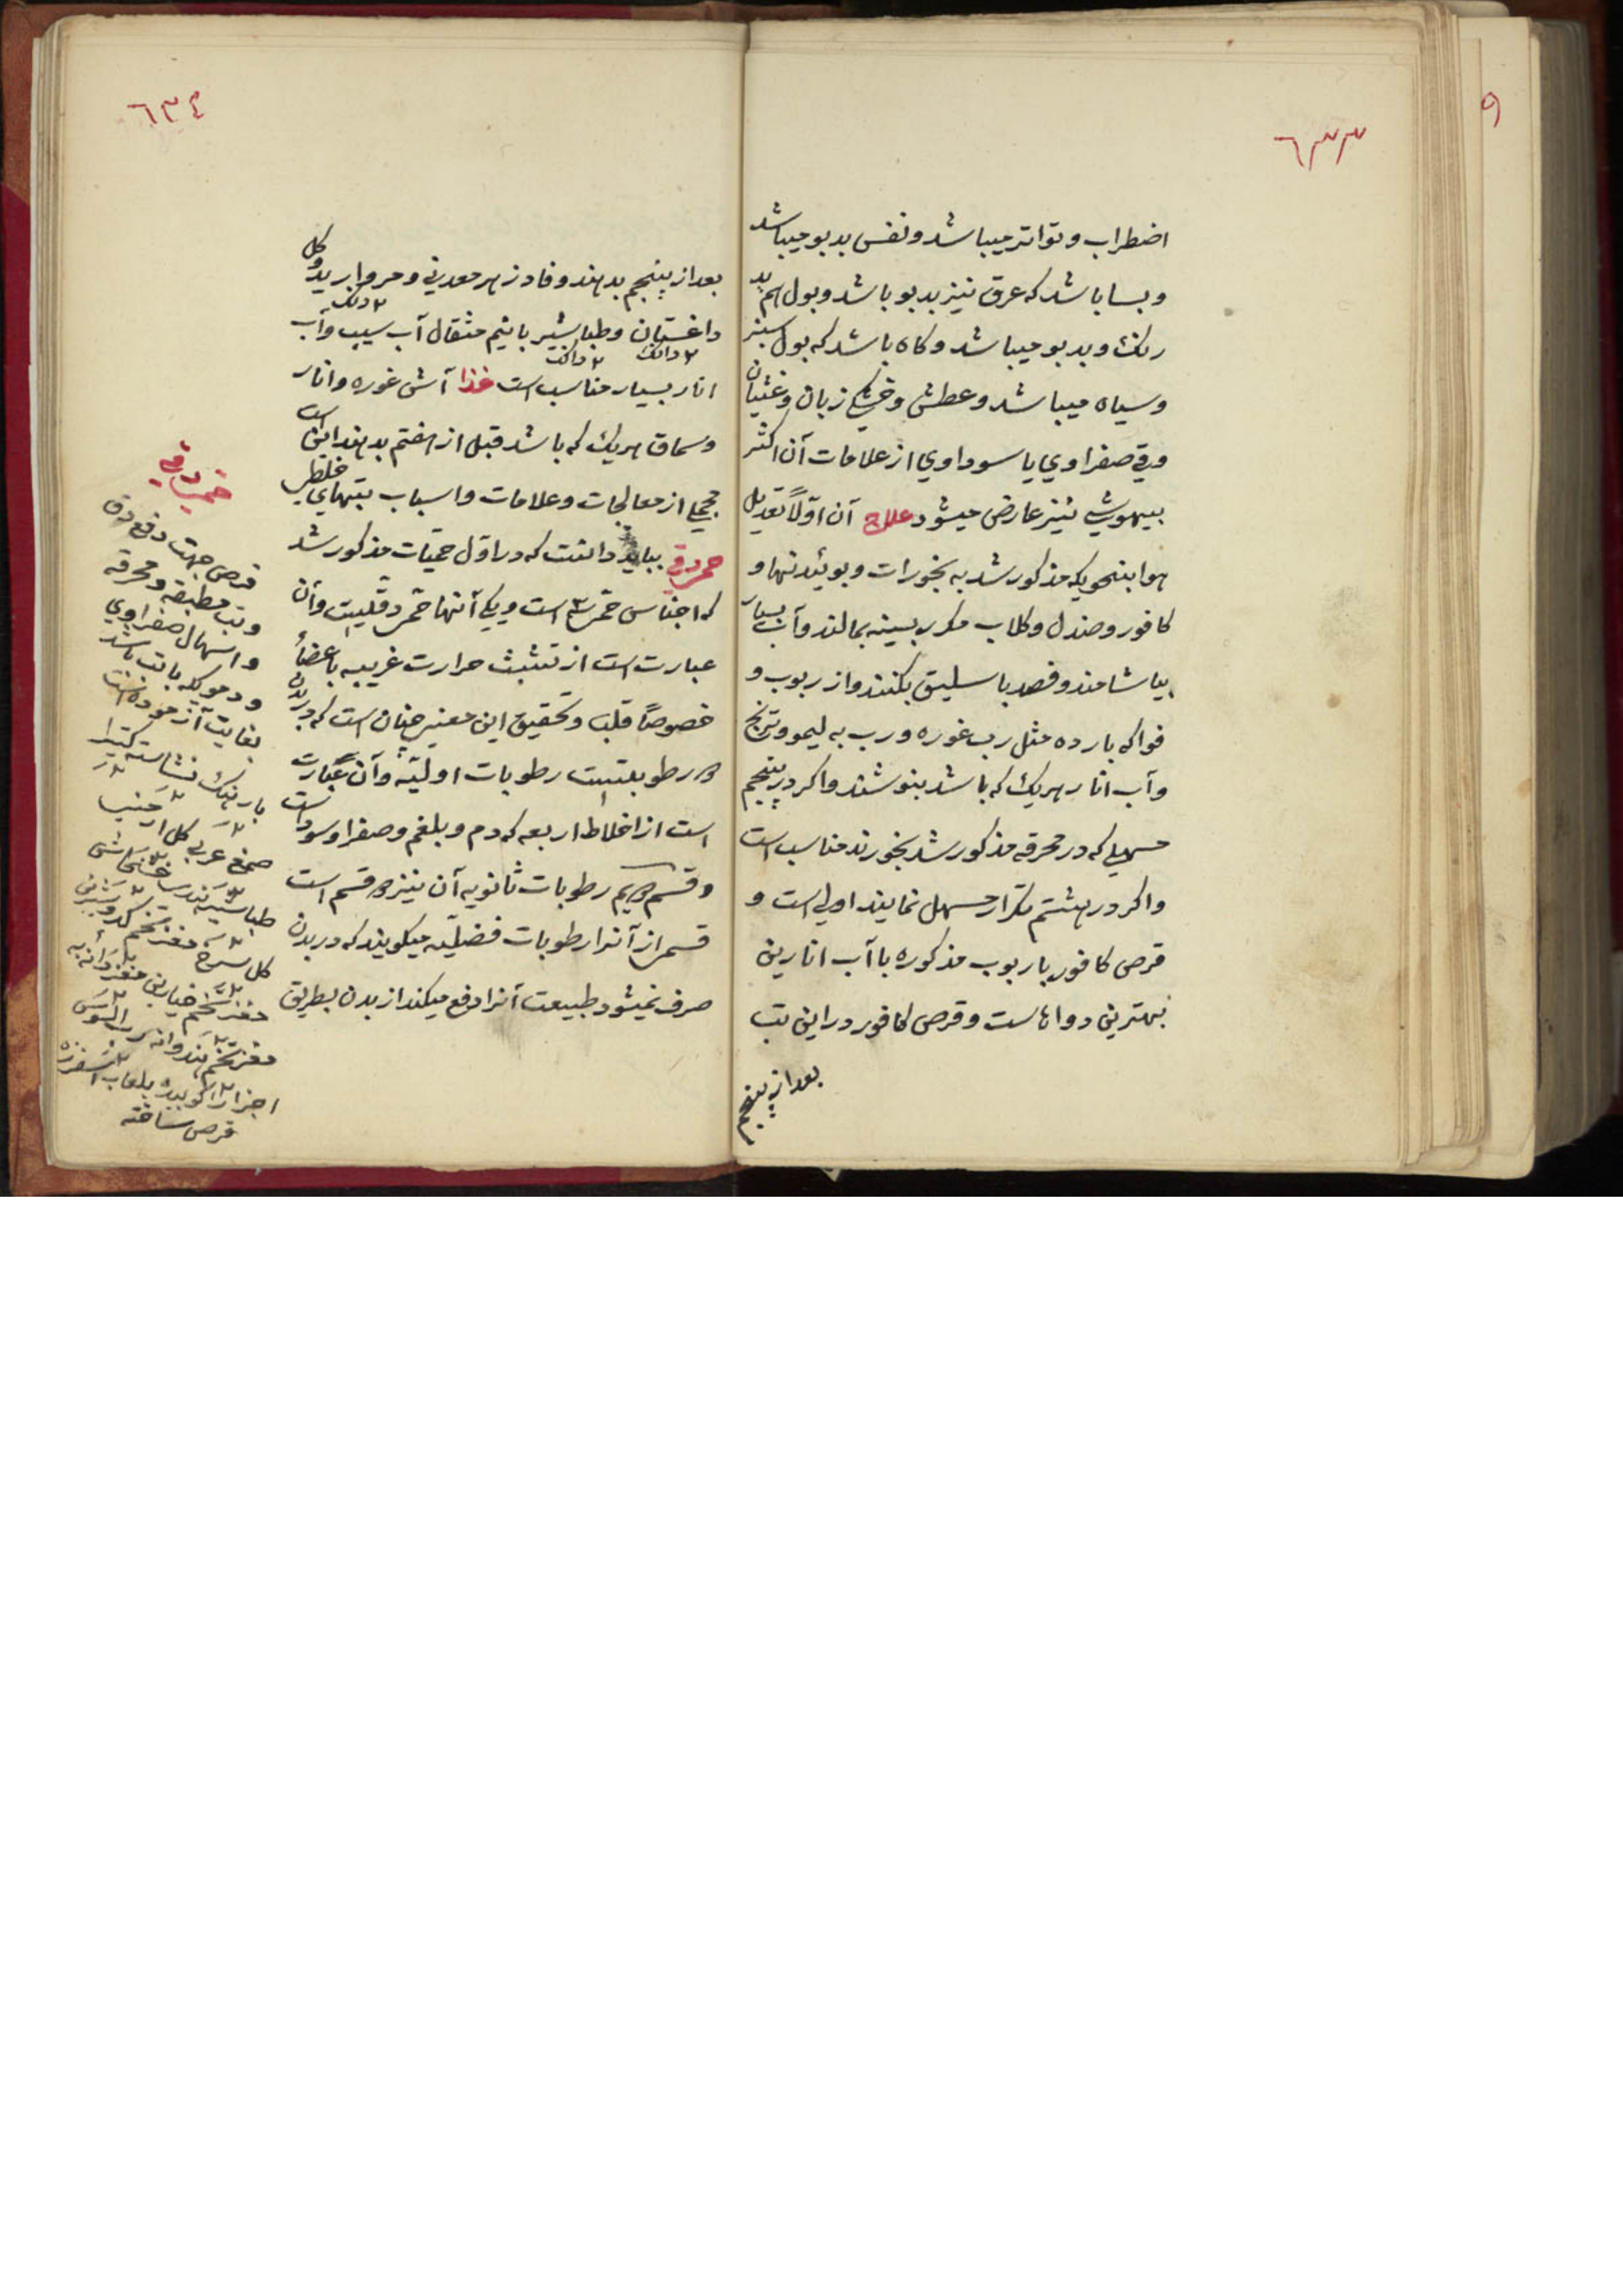 ٦٣٣
اضطراب و تواتر میباشد و نفس بدبو میباشد
و بسا باشد که عرق نیز بدبو باشد و بول هم بد
رنك و بدبو میباشد و کاه باشد که بول سبز
و سیاه میباشد و عطش و خشکي زبان و غثیان
و قي صفراوي یا سوداوي از علامات آن اکثر
بیهوشي نیز عارض میشود علاج آن اوّلاً تعدیل
هوا بنحویکه مذکور شد به بخورات و بوئیدنها و
کافور و صندل و کلاب مکرر بسینه بمالند و آب بسیار
بیاشامند و فصد باسلیق بکنند و از ربوب و
فواکه بارده مثل رب غوره و رب به لیمو و ترنج
و آب انار هریك که باشد بنوشند و اکر در پنجم
مسهلي که در محرقه مذکور شد بخورند مناسب است
و اکر در هشتم تکرار مسهل نمایند اولي است و
قرص کافور با ربوب مذکوره با آب انارین
بهترین دواهاست و قرص کافور در این تب
بعد از پنجم
٦٣٤
بعد از پنجم بدهند و فادزهر معدني و مروارید و کل
داغستان و طباشیر با نیم مثقال آب سیب و آب
انار بسیار مناسب است غذا آش غوره و انار
و سماق هریك که باشد قبل از هفتم بدهند این است
مجملي از معالجات و علامات و اسباب تبهاي خلطي
حمي دقي بباید دانست که در اوّل حمّیات مذکور شد
که اجناس حمي سه است و یکي آنها حمي دقّیست و آن
عبارت است از تشبث حرارت غریبه باعضاء
خصوصاً قلب و تحقیق این معني چنان است که در بدن
دو رطوبتست رطوبات اولیّه و آن عبارت
است از اخلاط اربعه که دم و بلغم و صفرا و سوداست
و قسم دویم رطوبات ثانویه آن نیز دو قسم است
قسمي از آنرا رطوبات فضلیّه میکویند که در بدن
صرف نمیشود طبیعت آنرا دفع میکند از بدن بطریق
حمي دقي
قرص جهت دفع دق
و تب مطبقه و محرقه
و اسهال صفراوي
و دمویکه با تب باشد
بغایت آزموده است
بارهنك نشاسته کتیرا
صمغ عربي کل ارمني
طباشیر خشخاش
کل سرخ مغز تخم کدو شیرین
مغز تخم خیارین مغز دانه به
مغز تخم هندوانه رب السوس
اجزا را کوبیده بلعاب اسفرزه
قرص ساخته